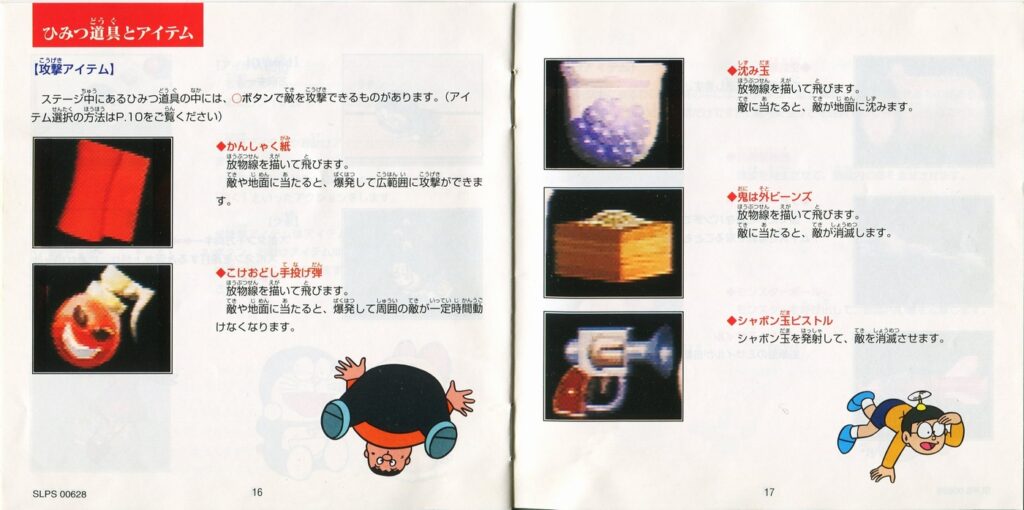 ひみつ道具とアイテム
【攻撃アイテム】
ステージ中にあるひみつ道具の中には、○ボタンで敵を攻撃できるものがあります。（アイ
テム選択の方法はP.10をご覧ください）
◆かんしゃく紙
放物線を描いて飛びます。
敵や地面に当たると、爆発して広範囲に攻撃ができま
す。
◆こけおどし手投げ弾
放物線を描いて飛びます。
敵や地面に当たると、爆発して周囲の敵が一定時間動
けなくなります。
SLPS 00628
16
◆沈み玉
放物線を描いて飛びます。
敵に当たると、敵が地面に沈みます。
◆鬼は外ビーンズ
放物線を描いて飛びます。
敵に当たると、敵が消滅します。
◆シャボン玉ピストル
シャボン玉を発射して、敵を消滅させます。
17